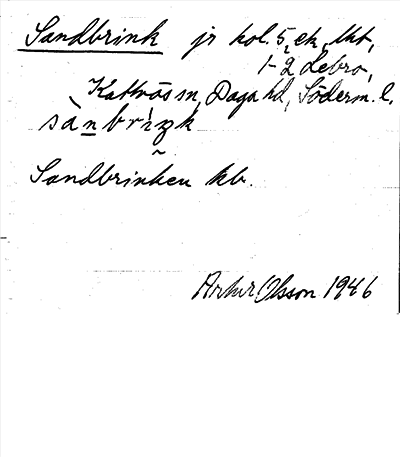 Sandbrink jr kol. 5, ek. Ukt,
1-2 Lebro,
Kattnäs sn, Daga hd, Söderm. l.
sànbrìŋk
Sandbrinken kb.
Artur Olsson 1946